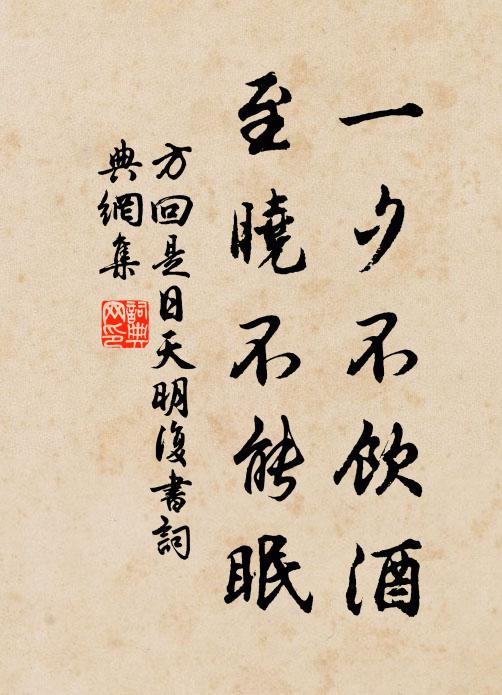 一夕不飲酒
至曉不能眠
方回是日天明復書詞
典網集
詞典
网印